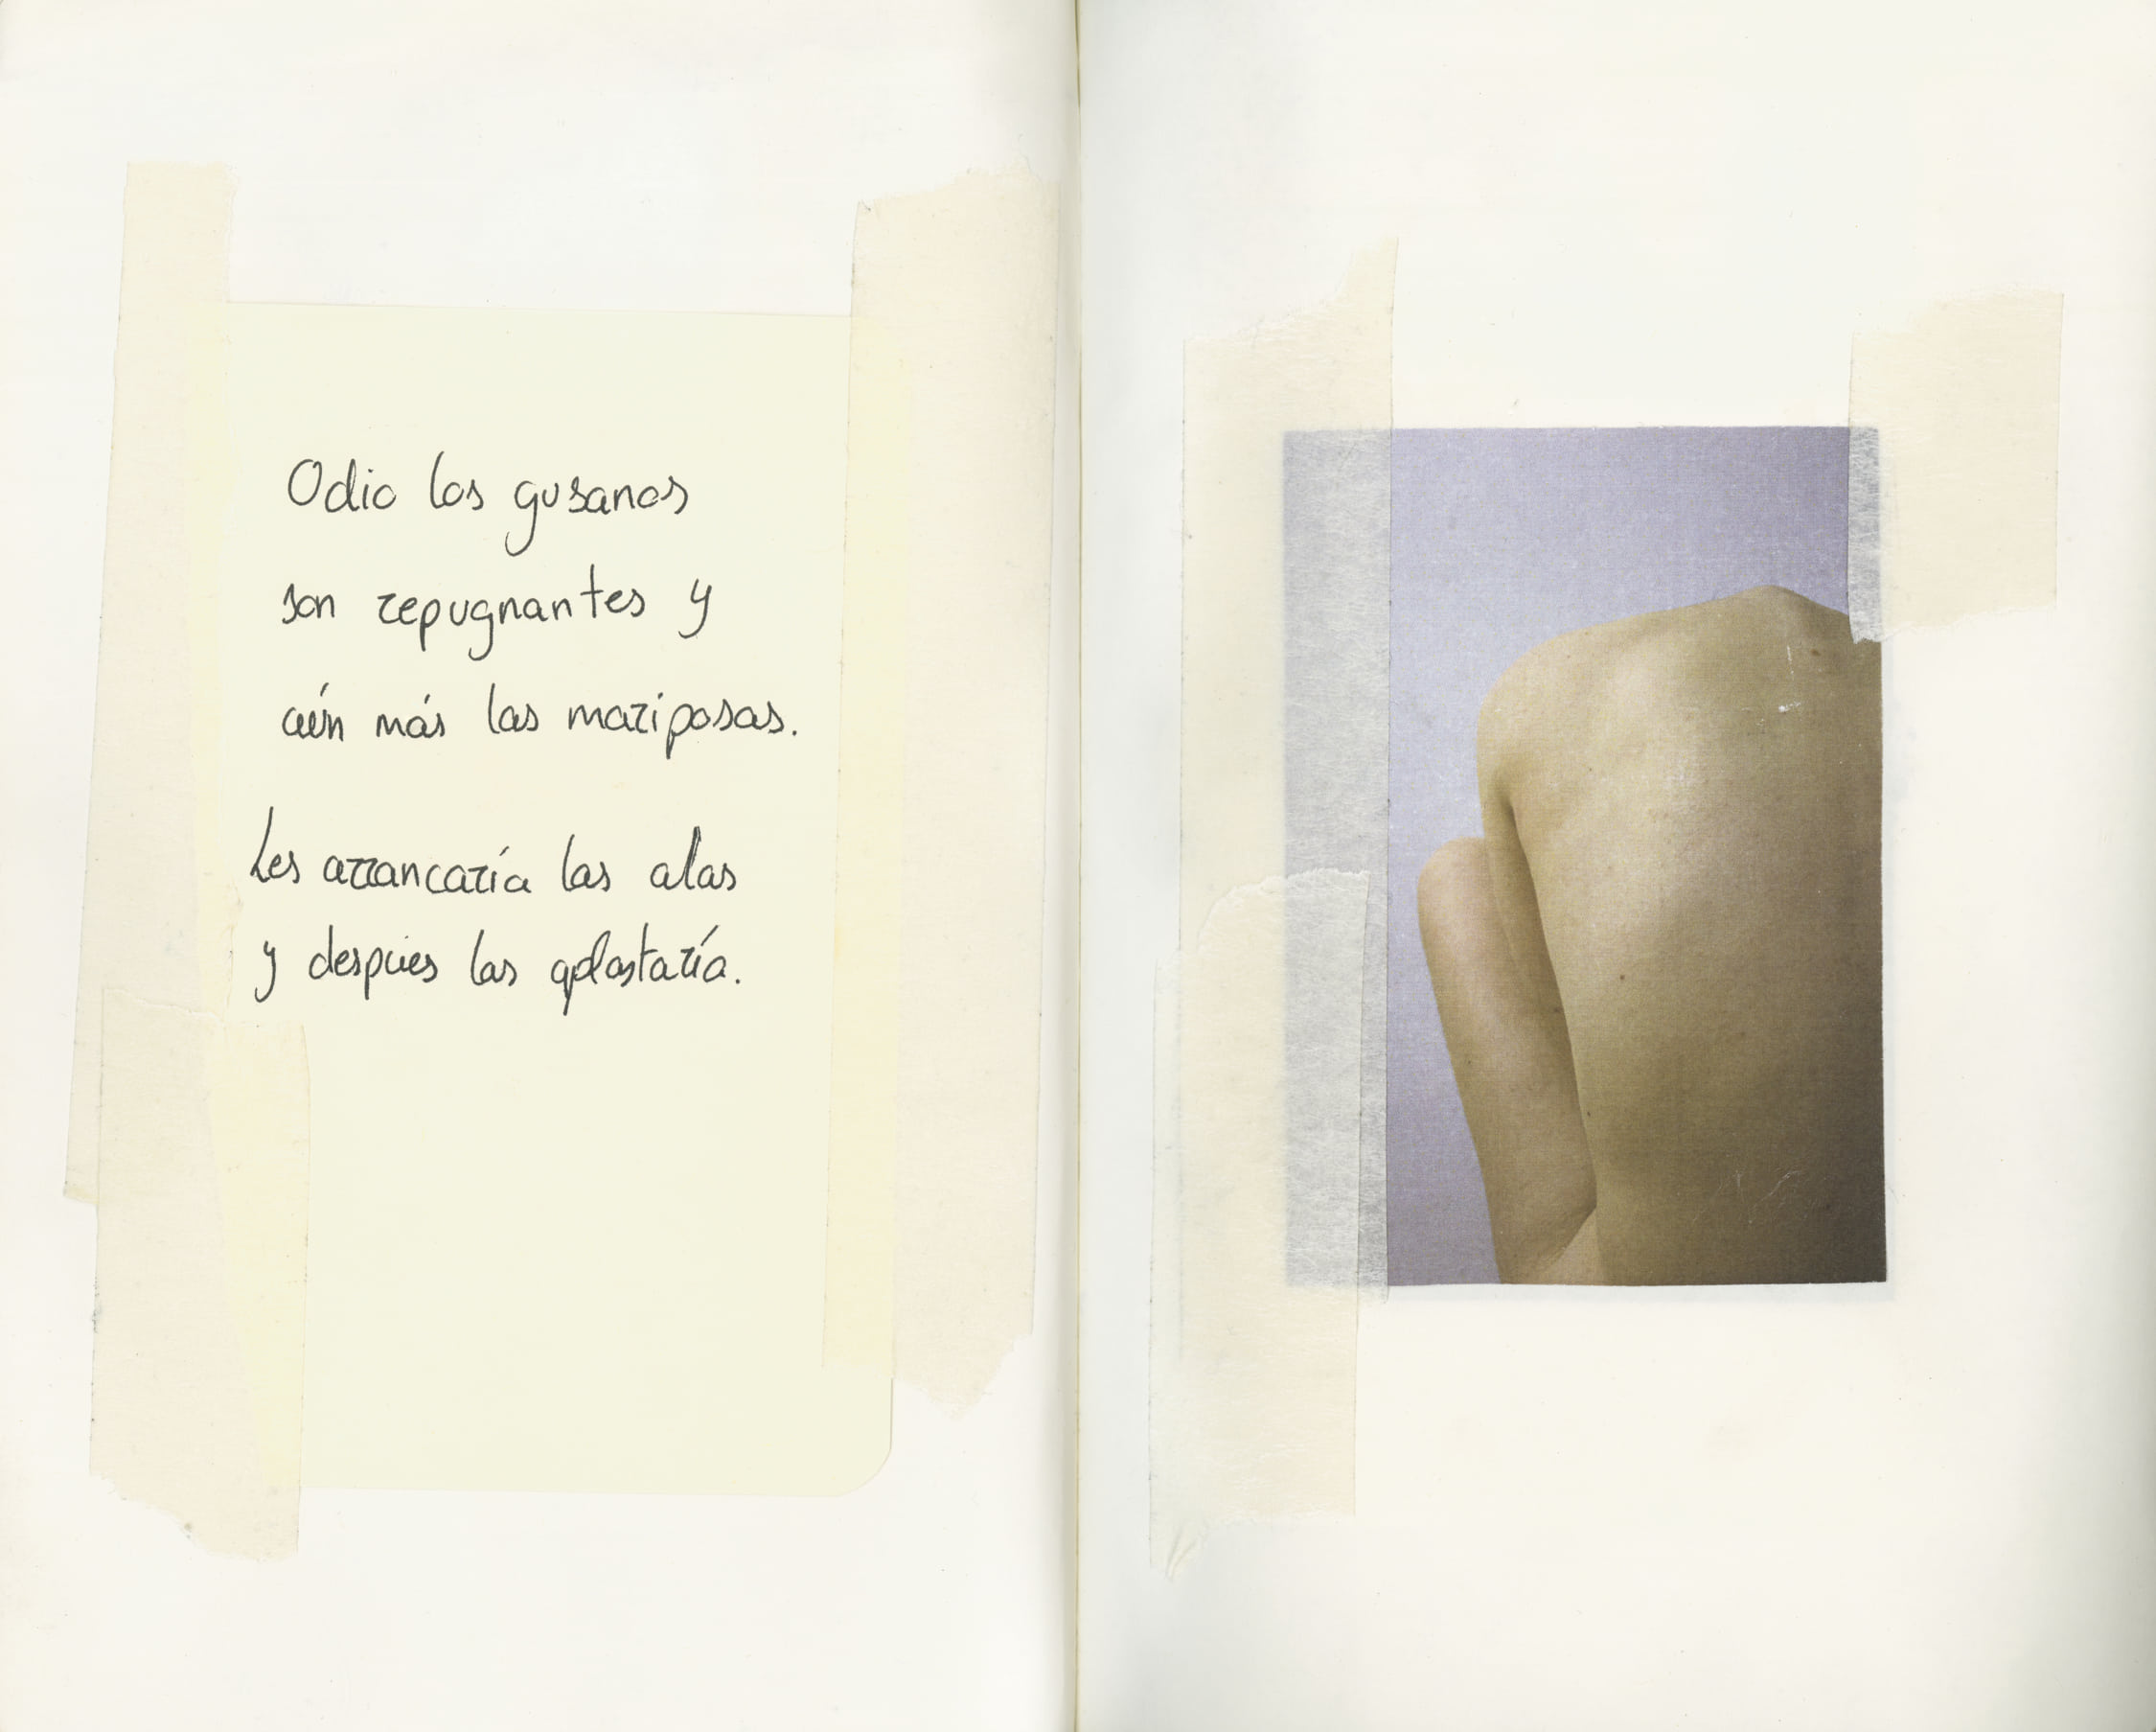 Odio los gusanos
son repugnantes y
aún más las mariposas.
Les arrancaría las alas
y después las aplastaría.